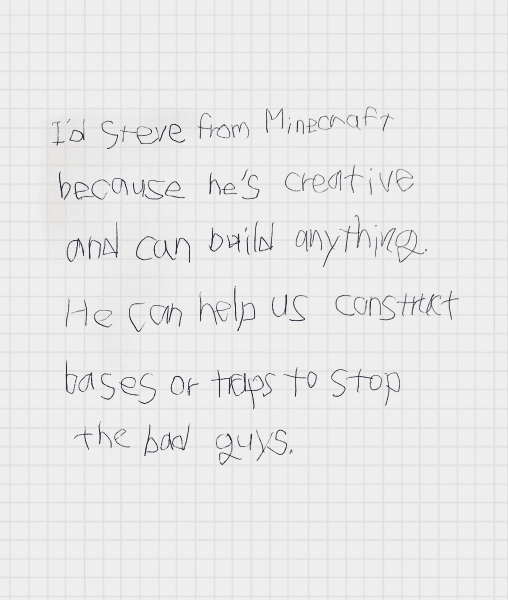 I'd Steve from Minecraft
because he's creative
and can build anything.
He can help us construct
bases or traps to stop
the bad guys.